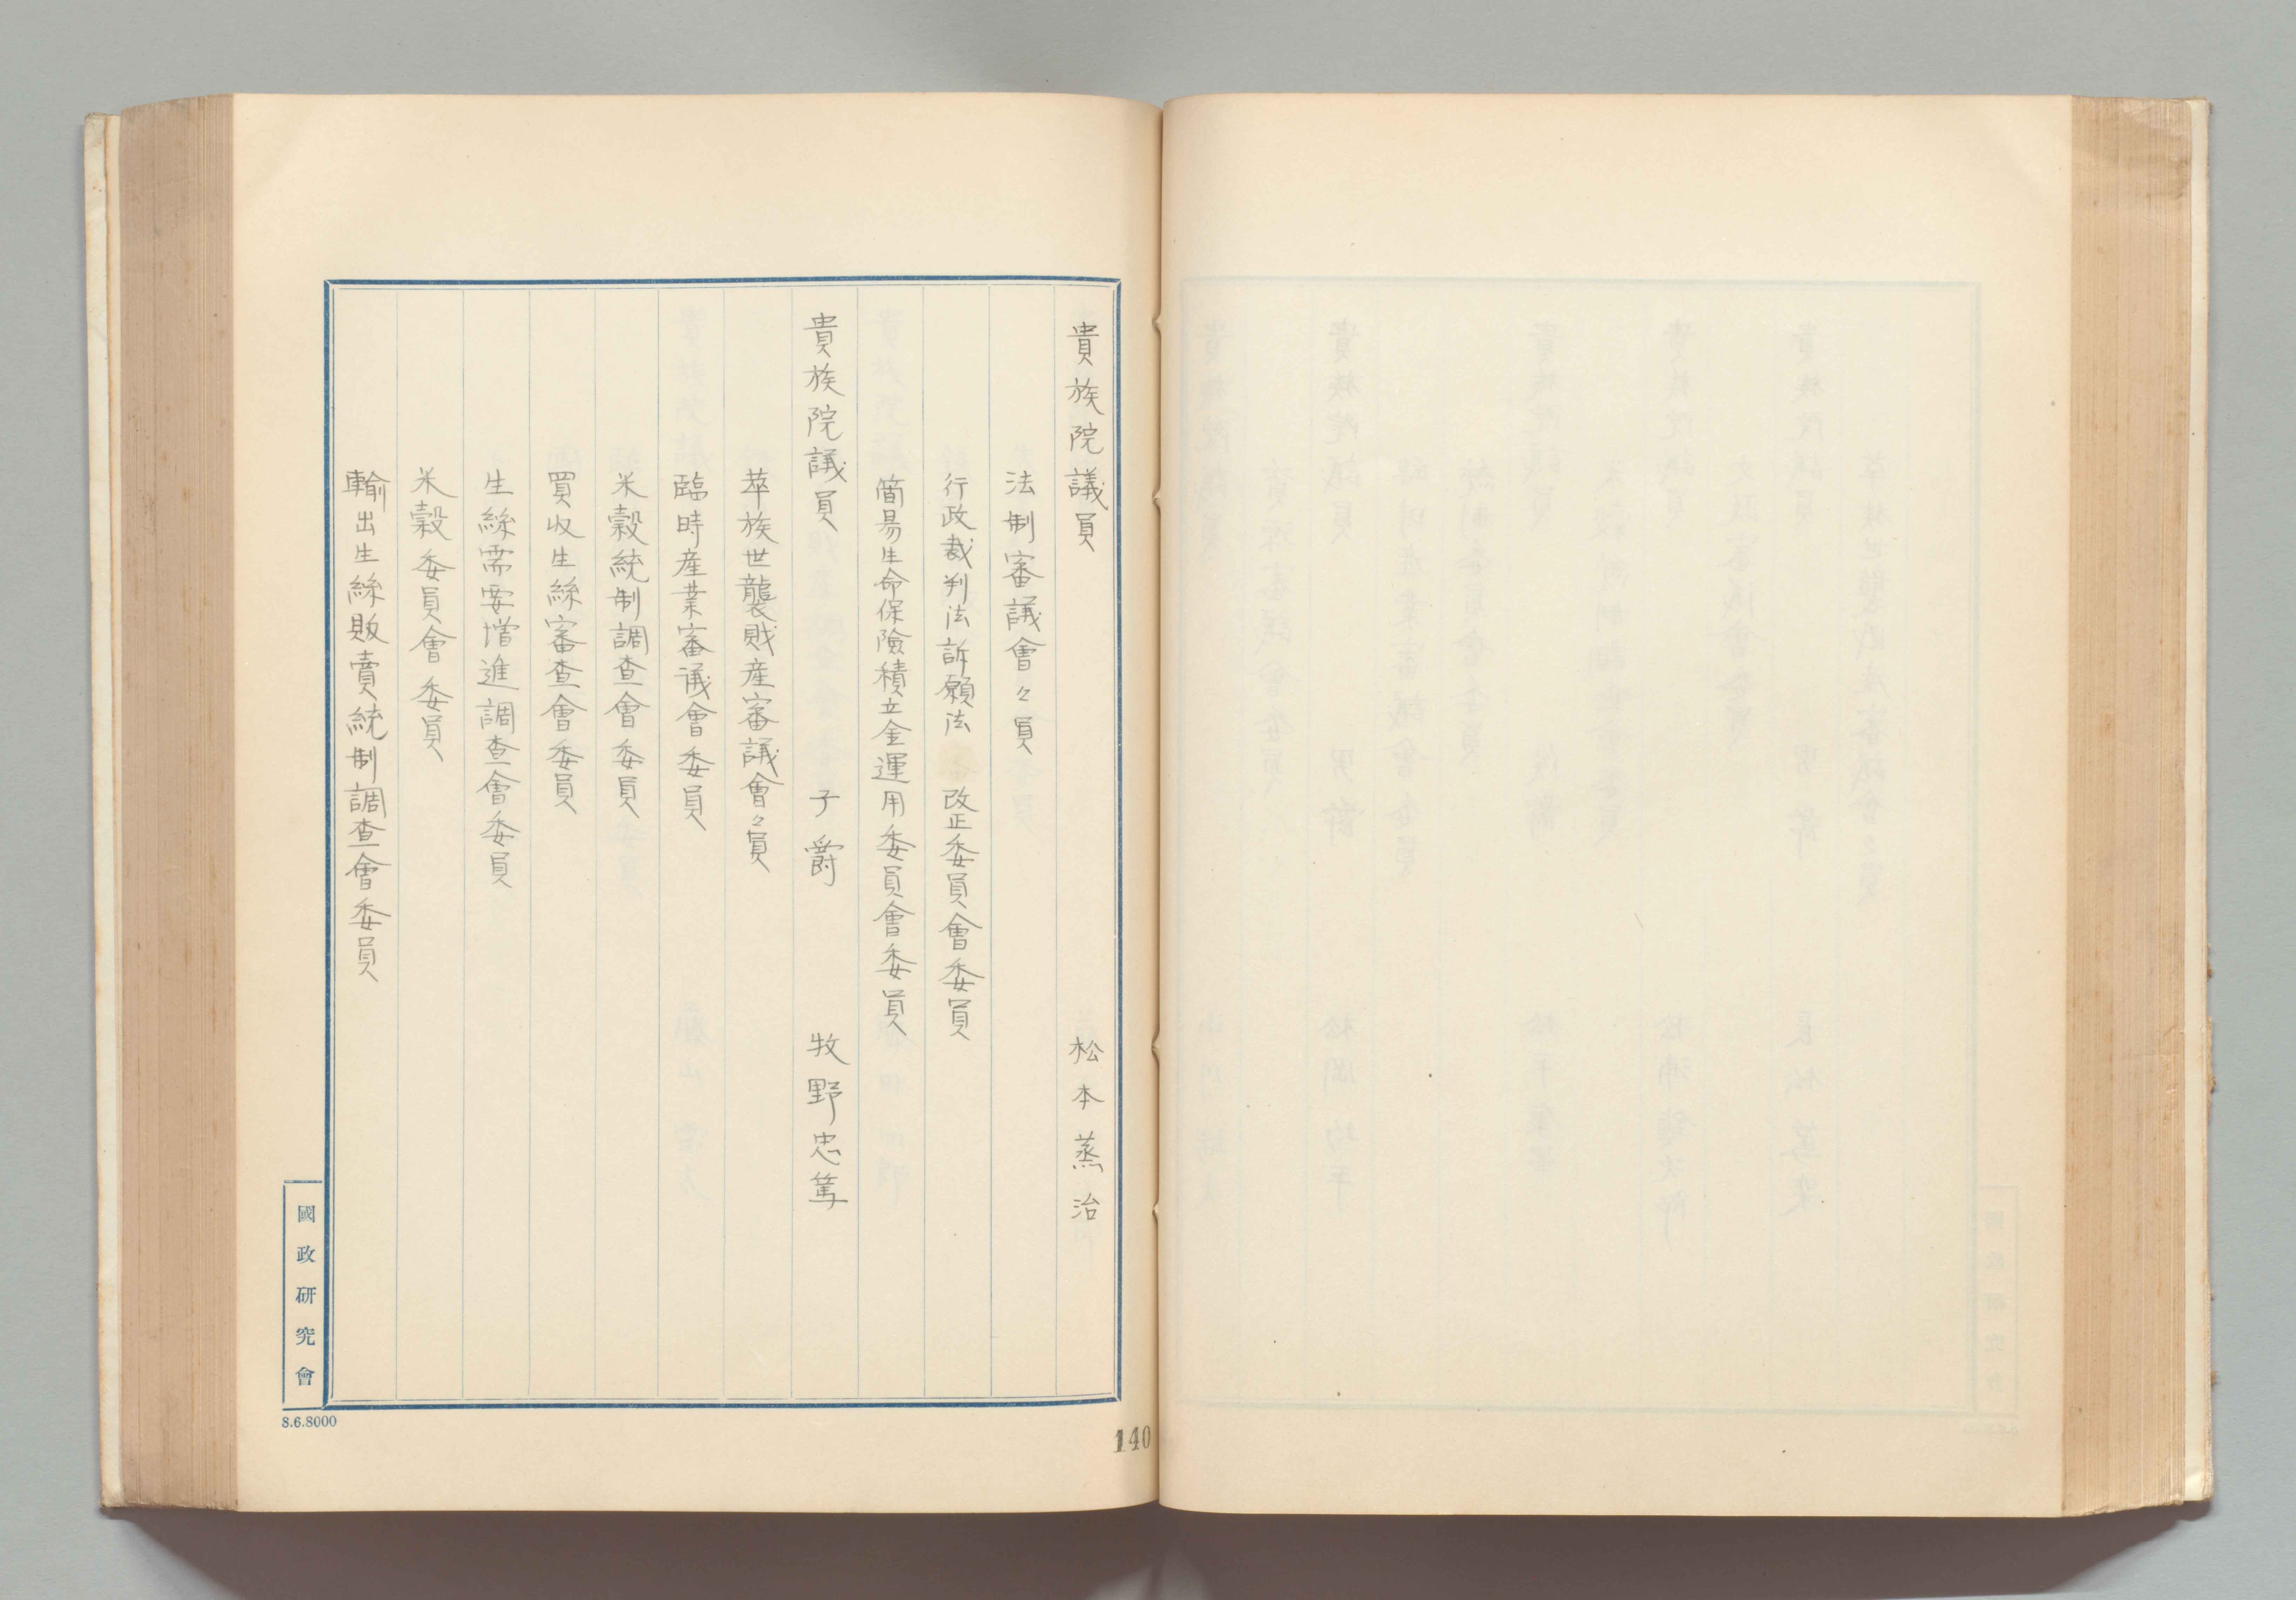 貴族院議員 松本蒸治
法制審議會々員
行政裁判法訴願法改正委員會委員
簡易生命保險積立金運用委員會委員
貴族院議員 子爵 牧野忠篤
華族世襲財産審議會々員
臨時産業審議會委員
米穀統制調査會委員
買收生絲審査會委員
生絲需要增進調査會委員
米穀委員會委員
輸出生絲販賣統制調査會委員
國政研究會
8.6.8000
140